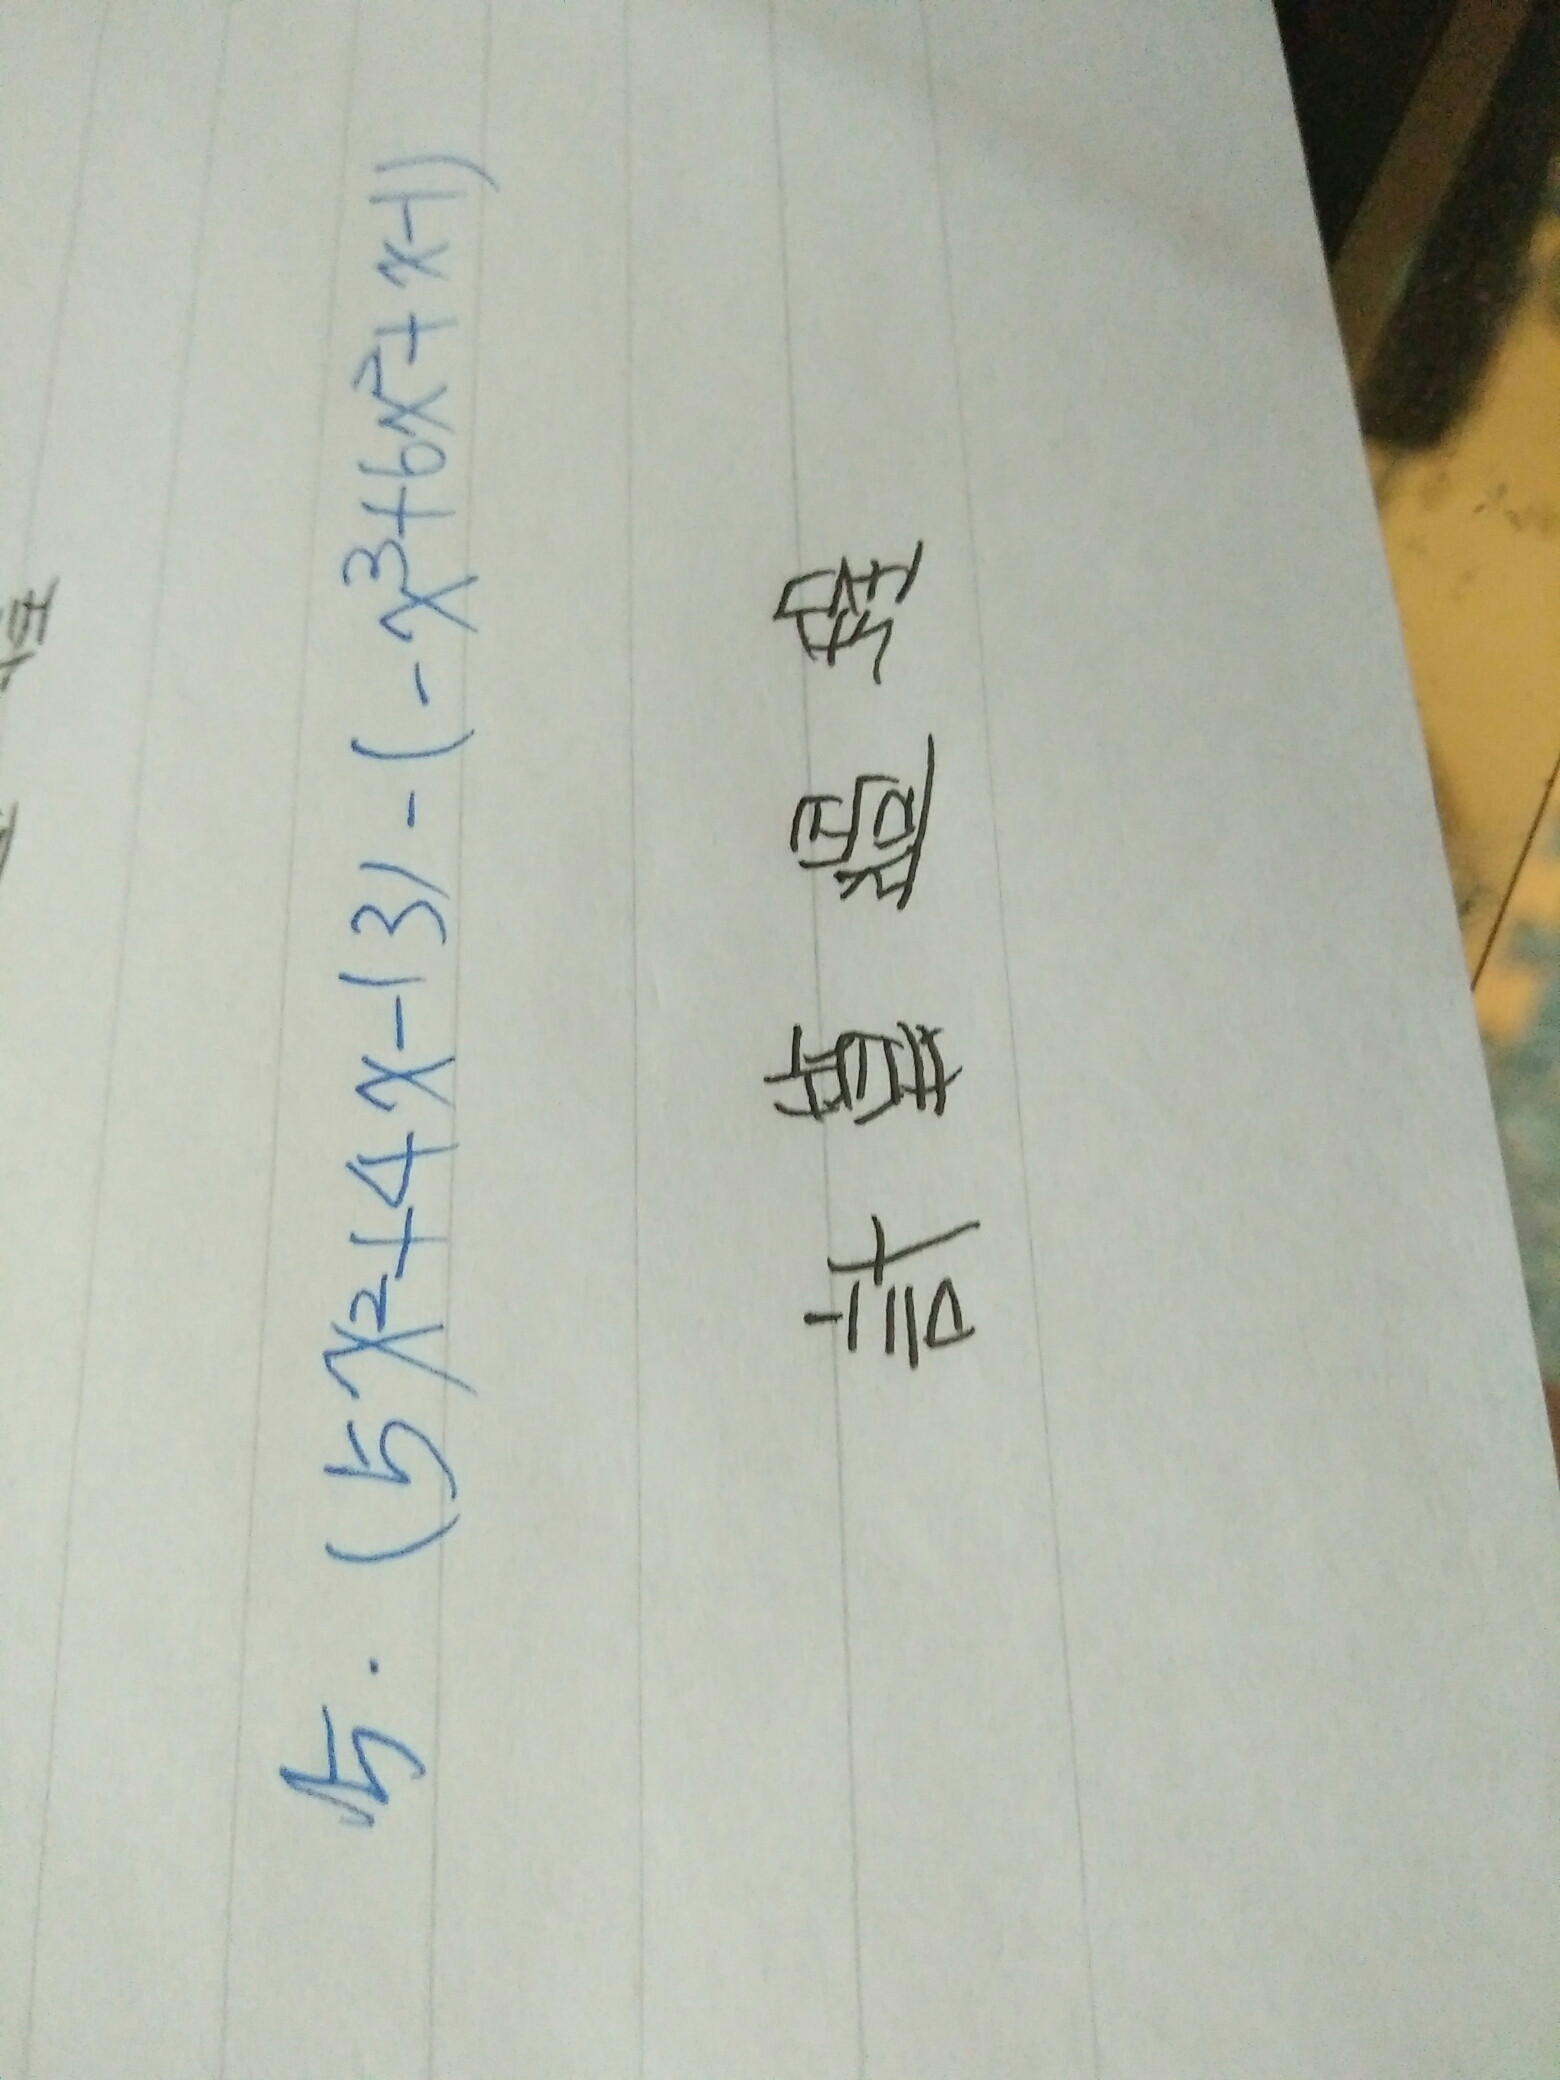 5. (5x²+4x-13)-(-x³+6x²+x-1)
計算過程